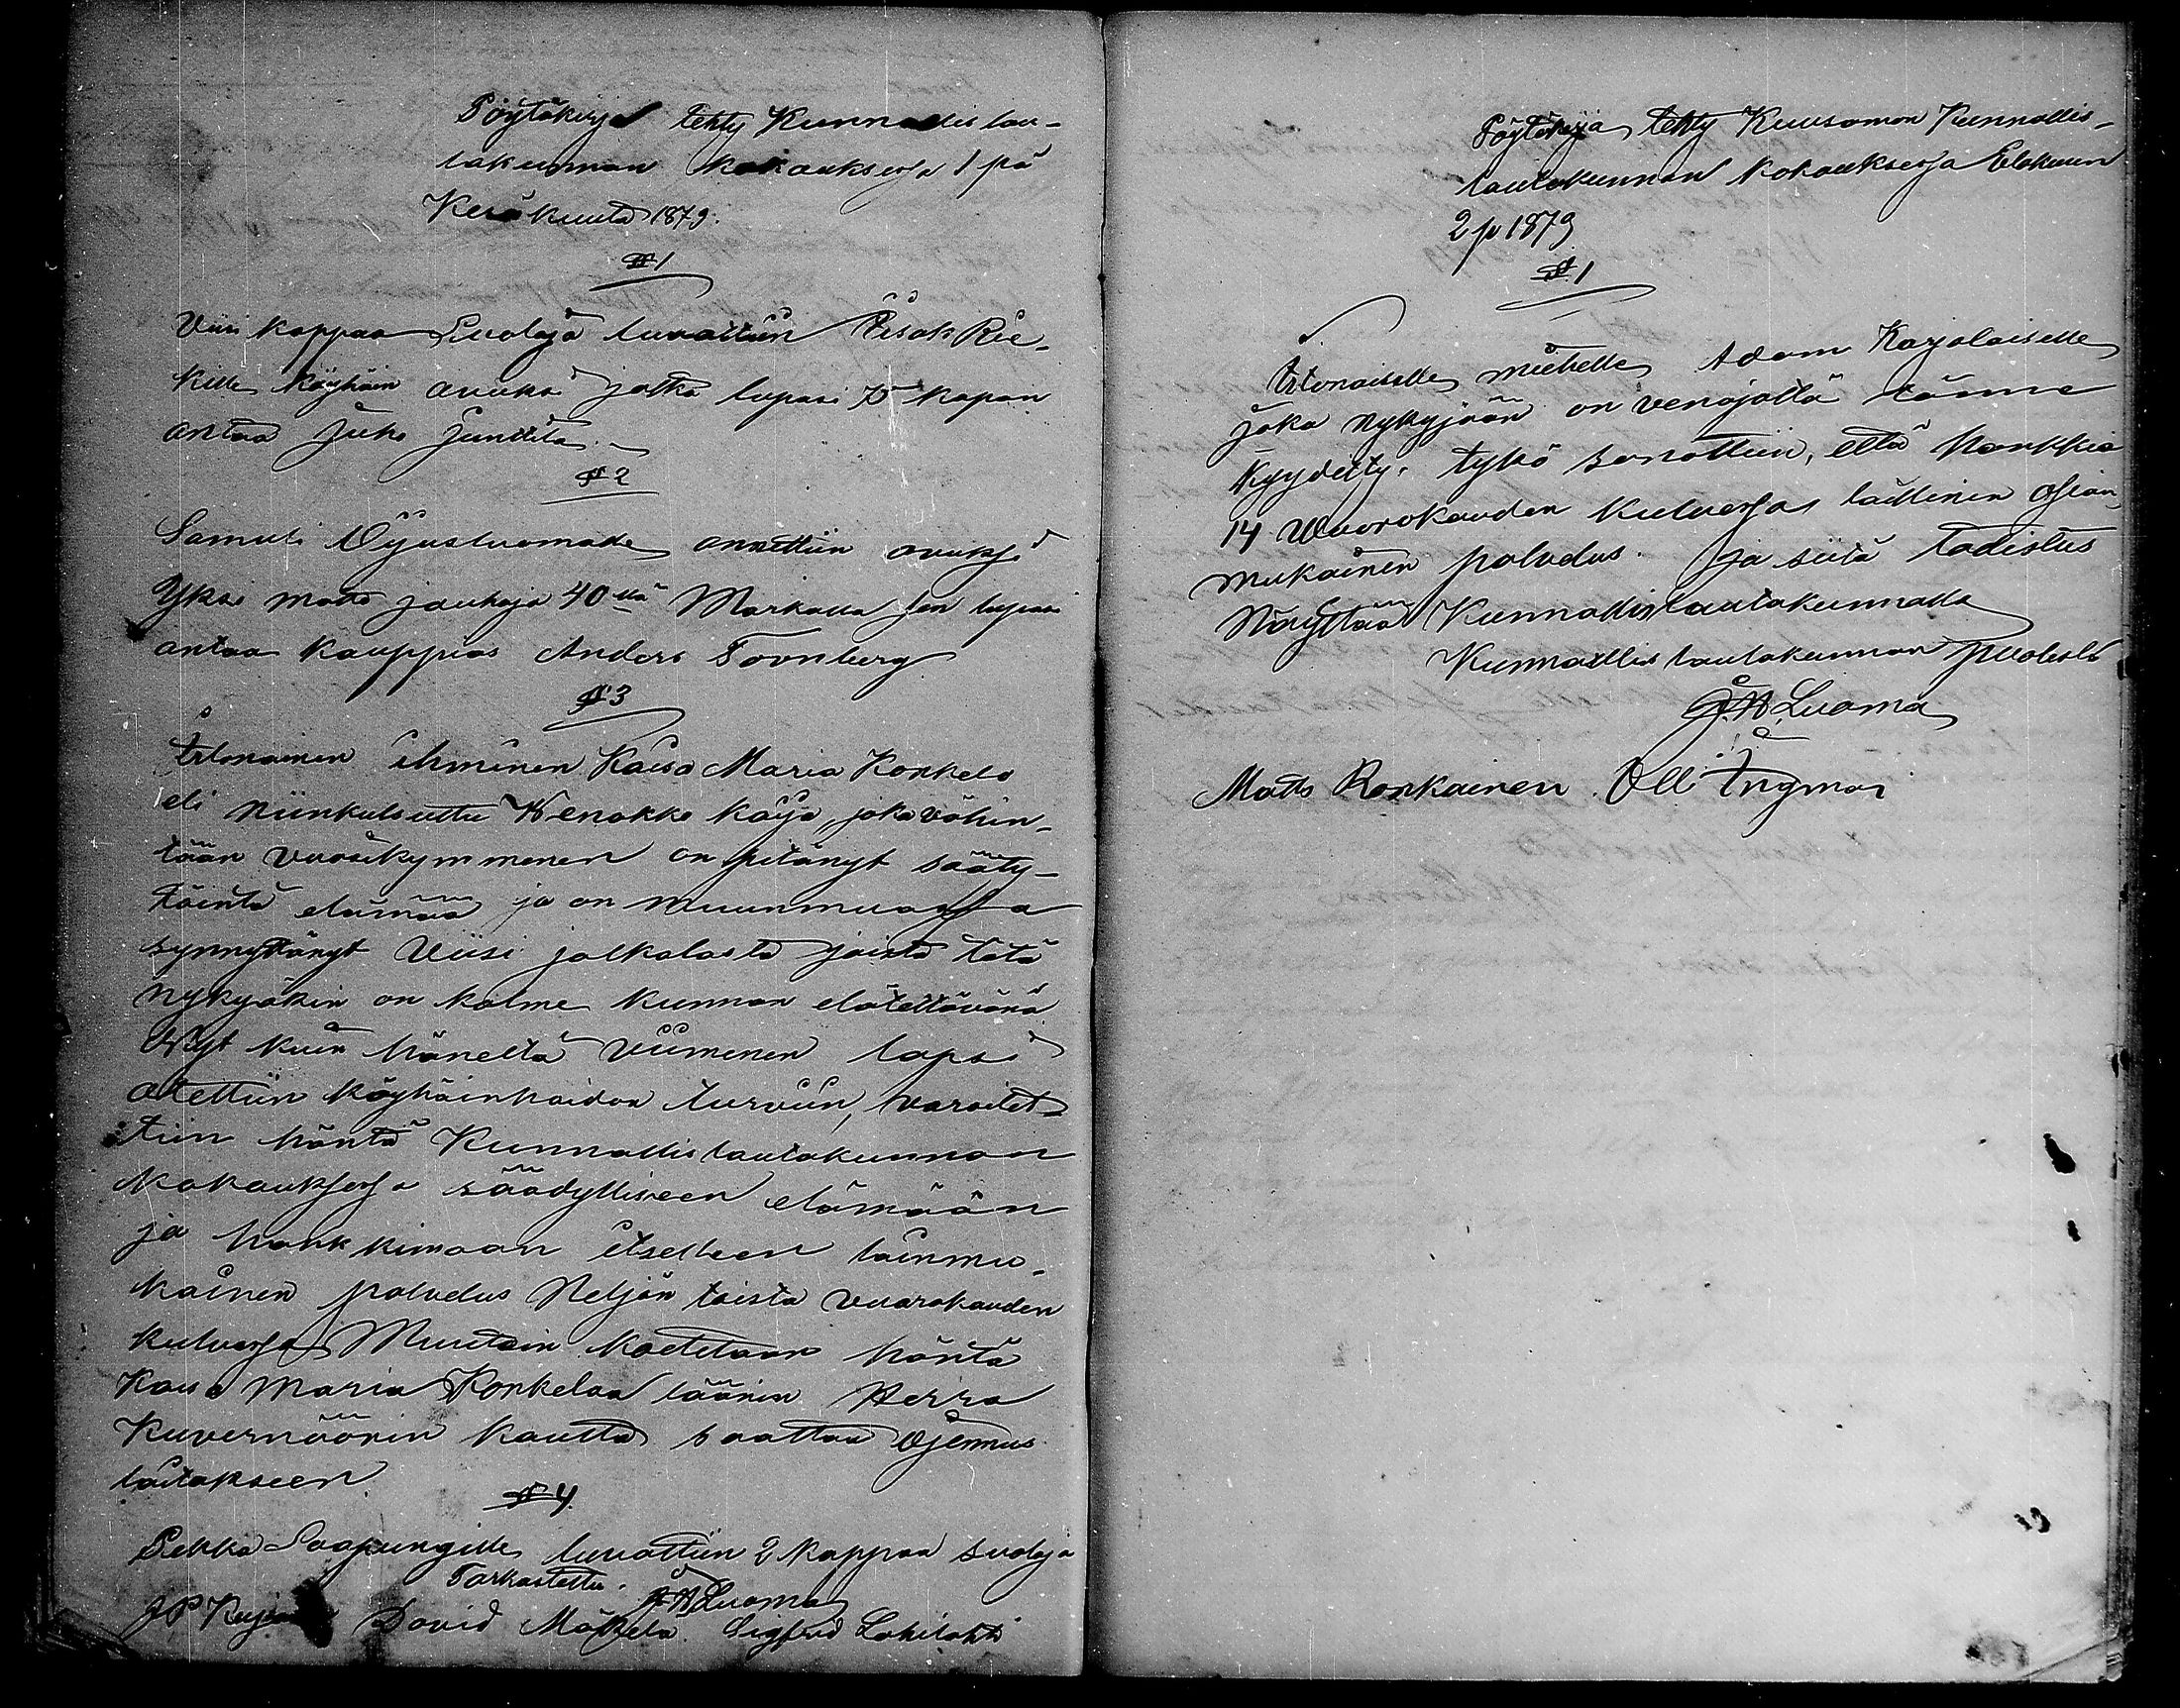 Pöytäkirja tehty Kunnallis lau-
takunnan kokouksessa 1 pä
Kesäkuuta 1879.
§ 1
Viisi kappaa Suoloja luvattiin Iisak Rie-
kille köyhäin avuksi jotka lupasi 75 kapan
antaa Juho Junttila.
§ 2
Samuli Öijusluomalle annettiin avuksi
Yksi matto jauhoja 40llä Markalla sen lupasi
antaa kauppias Anders Tovnberg
§ 3
Irtonainen ihminen Kaisa Maria Korkelo
eli niinkutsuttu Wenakko Kaija, joka vähin-
tään vuosikymmenen on pitänyt sääty-
töintä elämää ja on muunmuassa
synnyttänyt Viisi jalkalasta joista tätä
nykyäkin on kolme kunnan elätettävänä
Nyt kuin häneltä viimenen lapsi
otettiin köyhäinhoidon turviin, varoitet-
tiin häntä Kunnallislautakunnan
kokouksessa säädylliseen elämään
ja hankkimaan itselleen lainmu-
kainen palvelus Neljän toista vuorokauden
kuluessa Muutoin koetetaan häntä
Kaisa Maria Korkeloa läänin Herra
Kuvernöörin kautta saattaa Ojennus
laitokseen.
§ 4
Pekka Soapungille luvattiin 2 kappaa suoloja
Tarkastettu.
J. H. Luoma
J P David Mäkelä Sigfrid Lohilahti
Pöytäkirja tehty Kuusamon Kunnallis-
lautakunnan kokouksessa Elokuun
2 p 1879
§ 1
Irtonaiselle miehelle Adam Karjalaiselle
joka nykyjään on venäjältä tänne
kyydetty, tykö sanottiin, että hankkia
14 Vuorokauden kuluessa laillinen asian
mukainen palvelus. ja siitä todistus
Näyttää Kunnallislautakunnalle
Kunnallis lautakunnan puolesta
J. H. Luoma
Matts Ronkainen. Olli Ingman